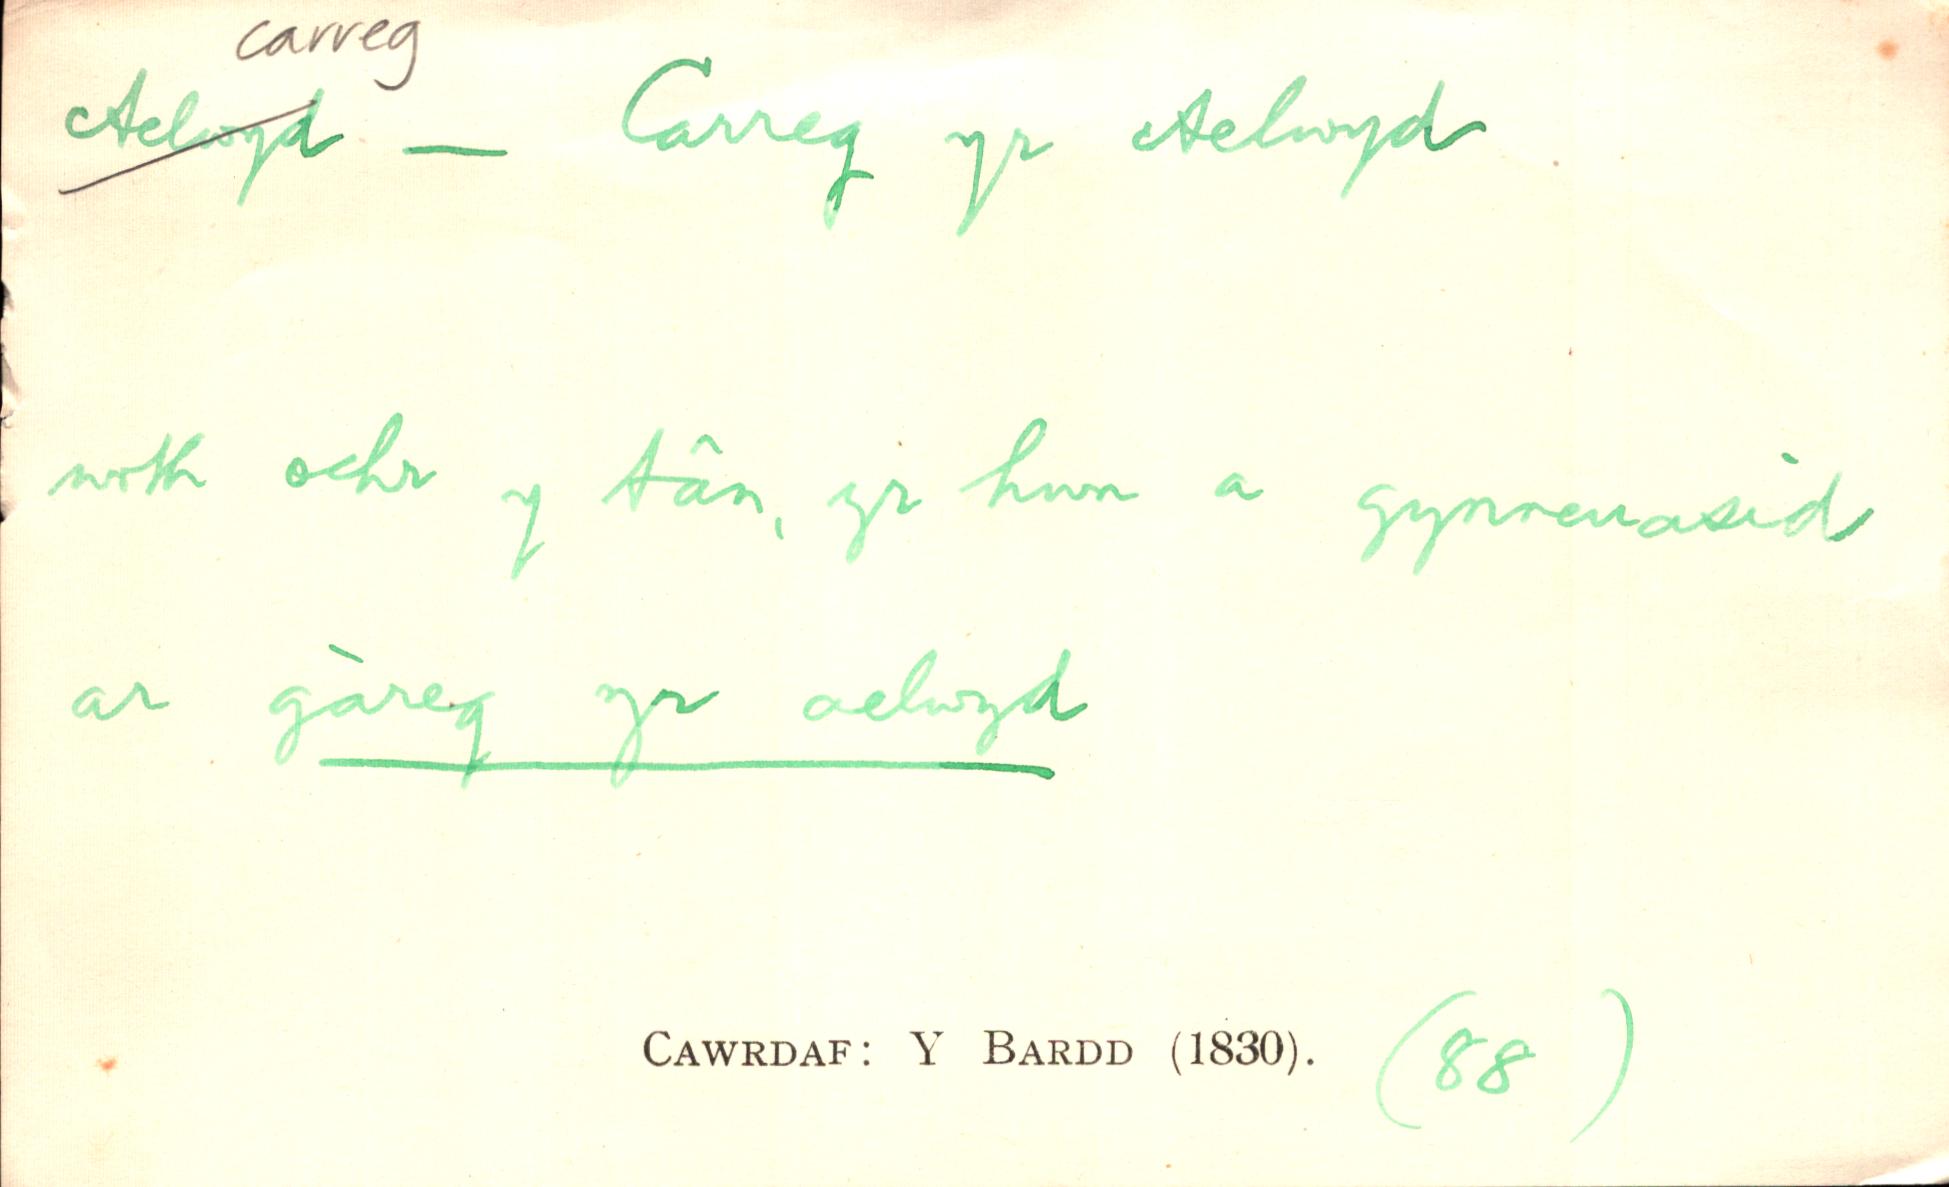 carreg
Aelwyd — Carreg yr Aelwyd
wrth ochr y tân, yr hwn a gynneuasid
ar gàreg yr aelwyd
CAWRDAF: Y BARDD (1830). (88)